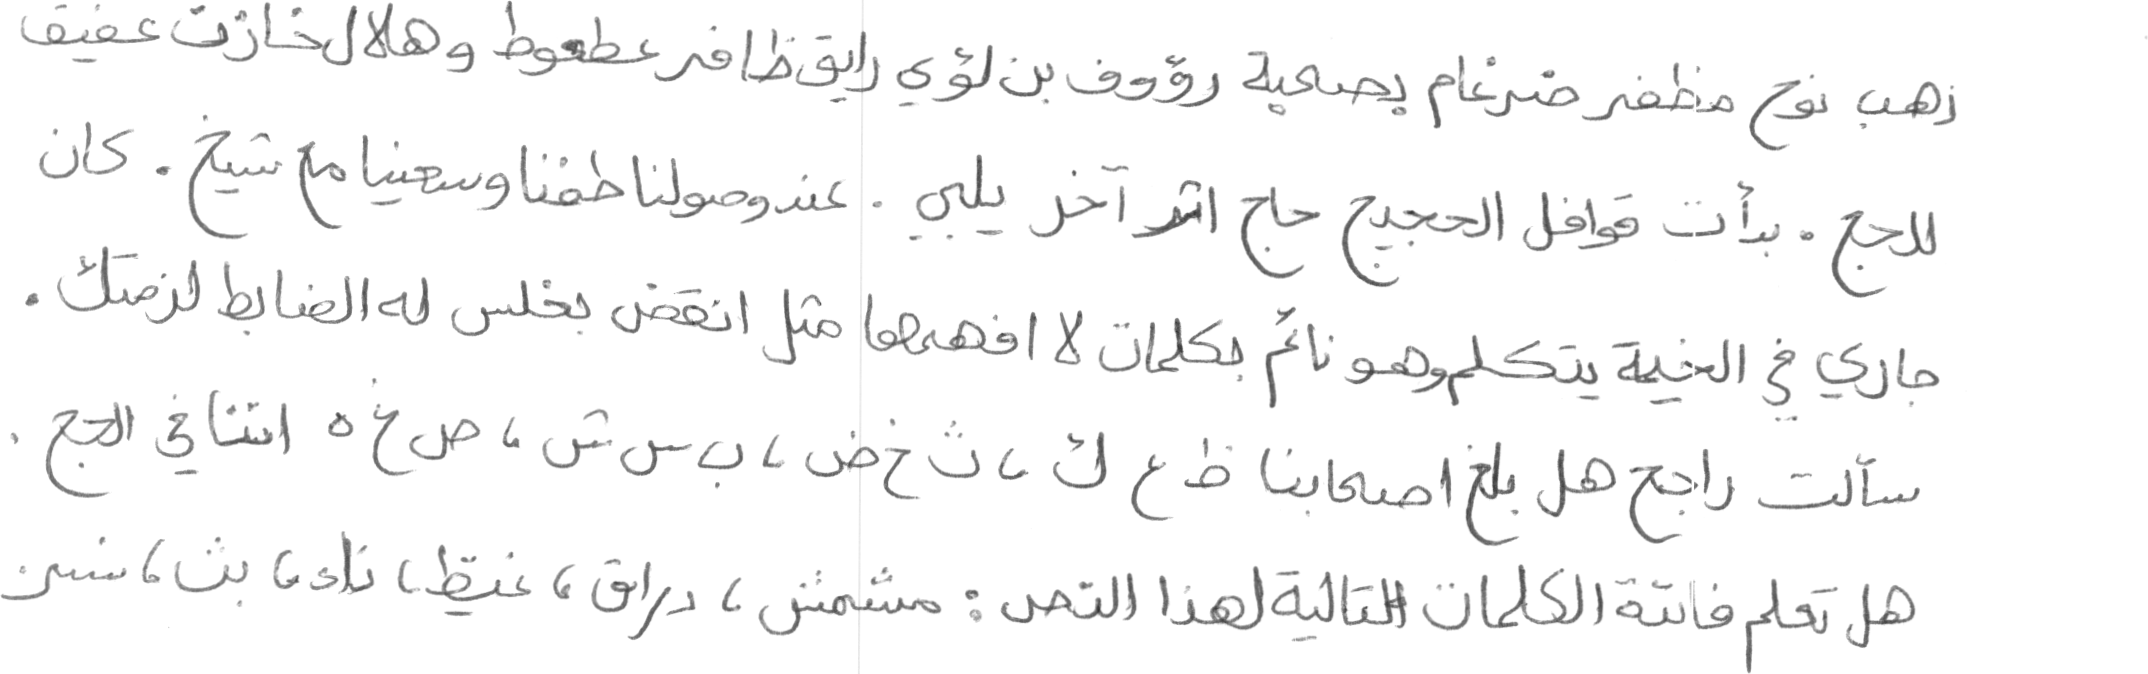 ذهب نوح مظفر ضرغام بصحبة رؤوف بن لؤي رايق ظافر عطعوط وهلال خازن عفيف
للحج . بدأت قوافل الحجيج حاج اثر آخر يلبي . عند وصولنا طفنا وسعينا مع شيخ . كان
جاري في الخيمة يتكلم وهو نائم بكلمات لا افهمها مثل انقض بغلس له الضابط لزمتك .
سألت راجح هل بلغ اصحابنا ظ ع ك ، ث خ ض ، ب س ش ، ص غ ه اننا في الحج .
هل تعلم فائتة الكلمات التالية لهذا النص : مشمش ، دراق ، غيظ ، ناء ، بث ، سنن